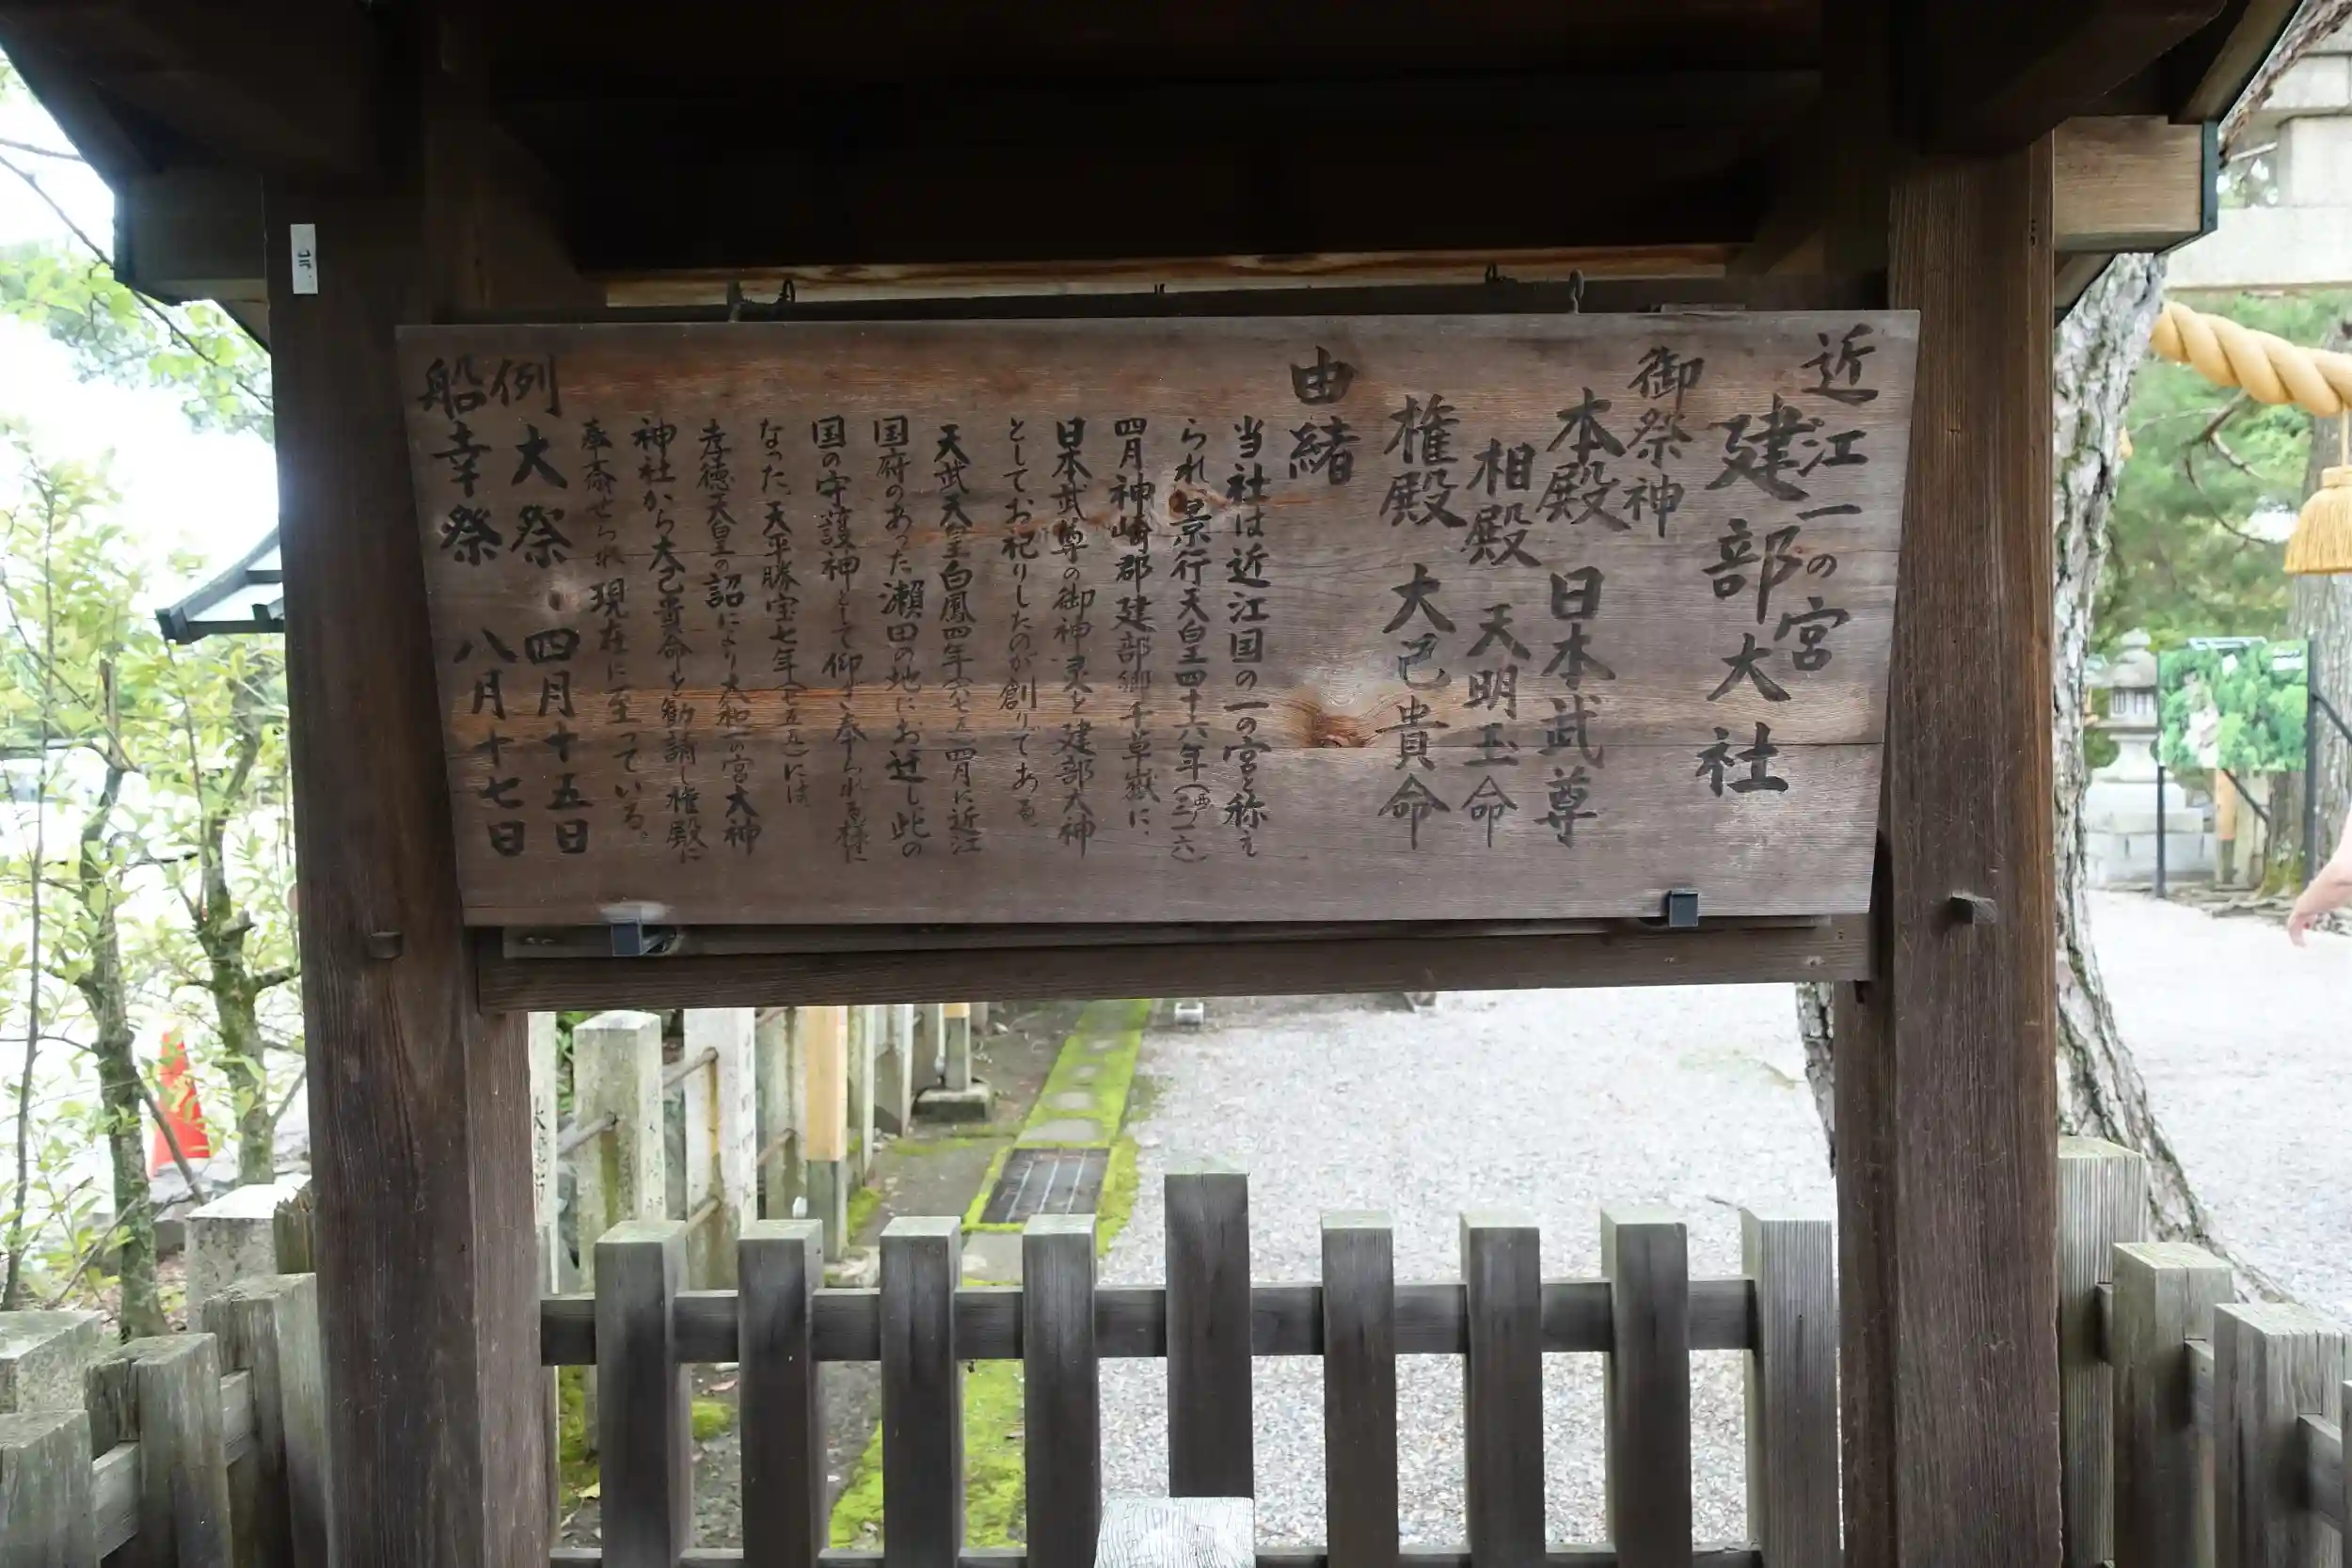 近江一の宮
建部大社
御祭神
本殿 日本武尊
相殿 天明玉命
権殿 大己貴命
由緒
当社は近江国の一の宮と称え
られ景行天皇四十六年(西三一六)
四月神崎郡建部郷千草嶽に、
日本武尊の御神灵を建部大神
としてお祀りしたのが創りである。
天武天皇白鳳四年(六七五)四月に近江
国府のあった瀬田の地にお迁し此の
国の守護神として仰ぎ奉られる様に
なった、天平勝宝七年(七五五)には
孝徳天皇の詔により大和一の宮大神
神社から大己貴命を勧請し権殿に
奉斎せられ現在に至っている。
例大祭 四月十五日
船幸祭 八月十七日